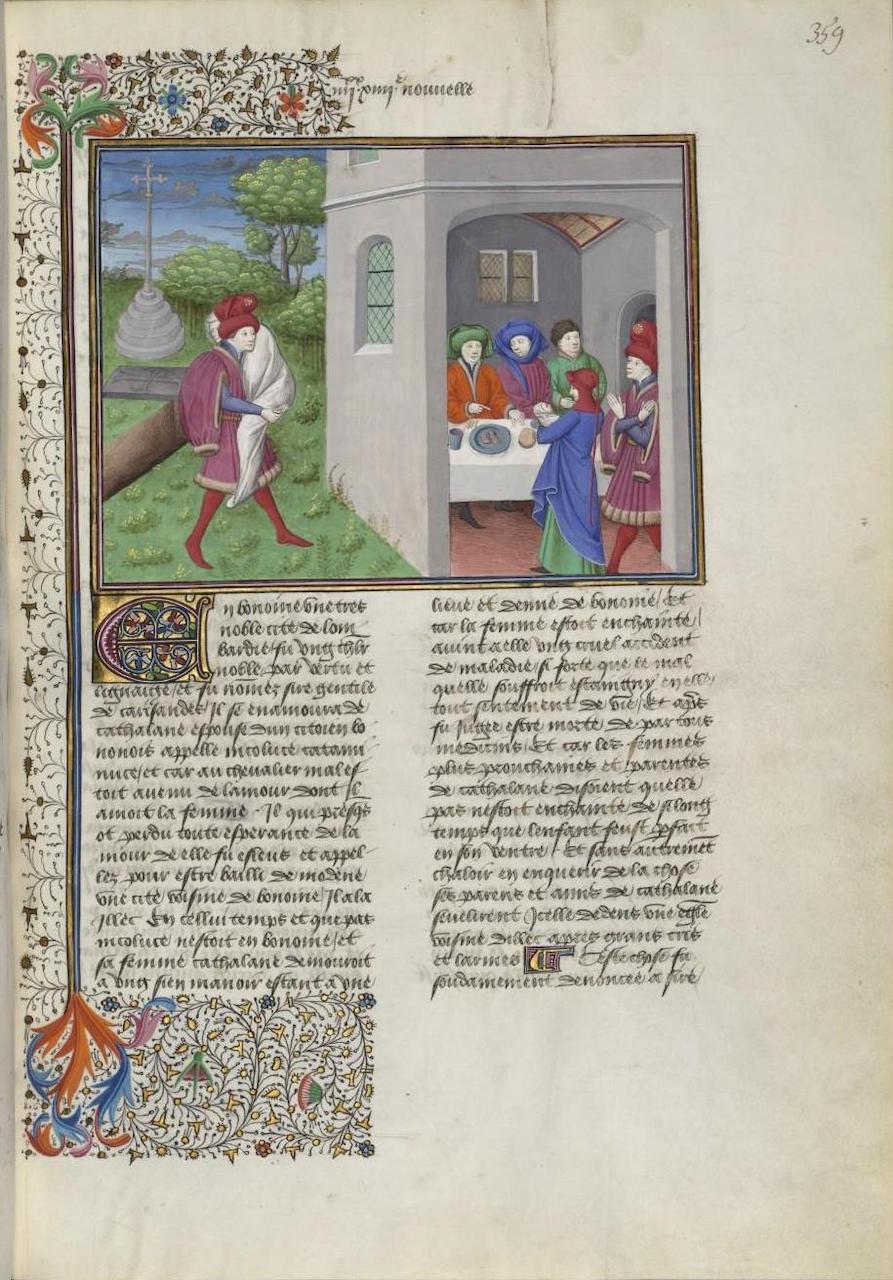 359
iiijxx xiiije nouuelle
En bonoine vne tres
noble cite de lom
bardie fu vng chlr
noble par vertu et
lignaige et fu nomez sire gentile
de carisandes Il se enamoura de
cathalane espouse dun citoien bo
nonois appelle nicoluce catani
nuce et car au chevalier mal es
toit auenu de lamour dont Il
amoit la femme . Il qui presqs
ot perdu toute esperance de la
mour de elle fu esleus et appel
lez pour estre baille de modene
vne cite voisine de bonoine Il ala
illec En cellui temps et que pas
nicoluce nestoit en bonoine et
sa femme cathalane demouroit
a vng sien manoir estant a vne
lieue et demie de bonoine / Et
car la femme estoit enchainte /
auint a elle vng cruel accident
de maladie si forte que le mal
quelle souffroit estaingny en elle
tout sentement de vie / Et aps
fu Iugee estre morte de par tous
medicins / Et car les femmes
plus prouchaines et parentes
de cathalane disoient quelle
pas nestoit enchainte de si long
temps que lenfant feust pfait
en son ventre / Et sans autremet
chaloir en enquerir de la chose
ses parens et amis de cathalane
seuelirent Icelle dedens vne egle
voisine dillec apres grans cris
et larmes Ceste chose fu
soudainement denoncee a sire